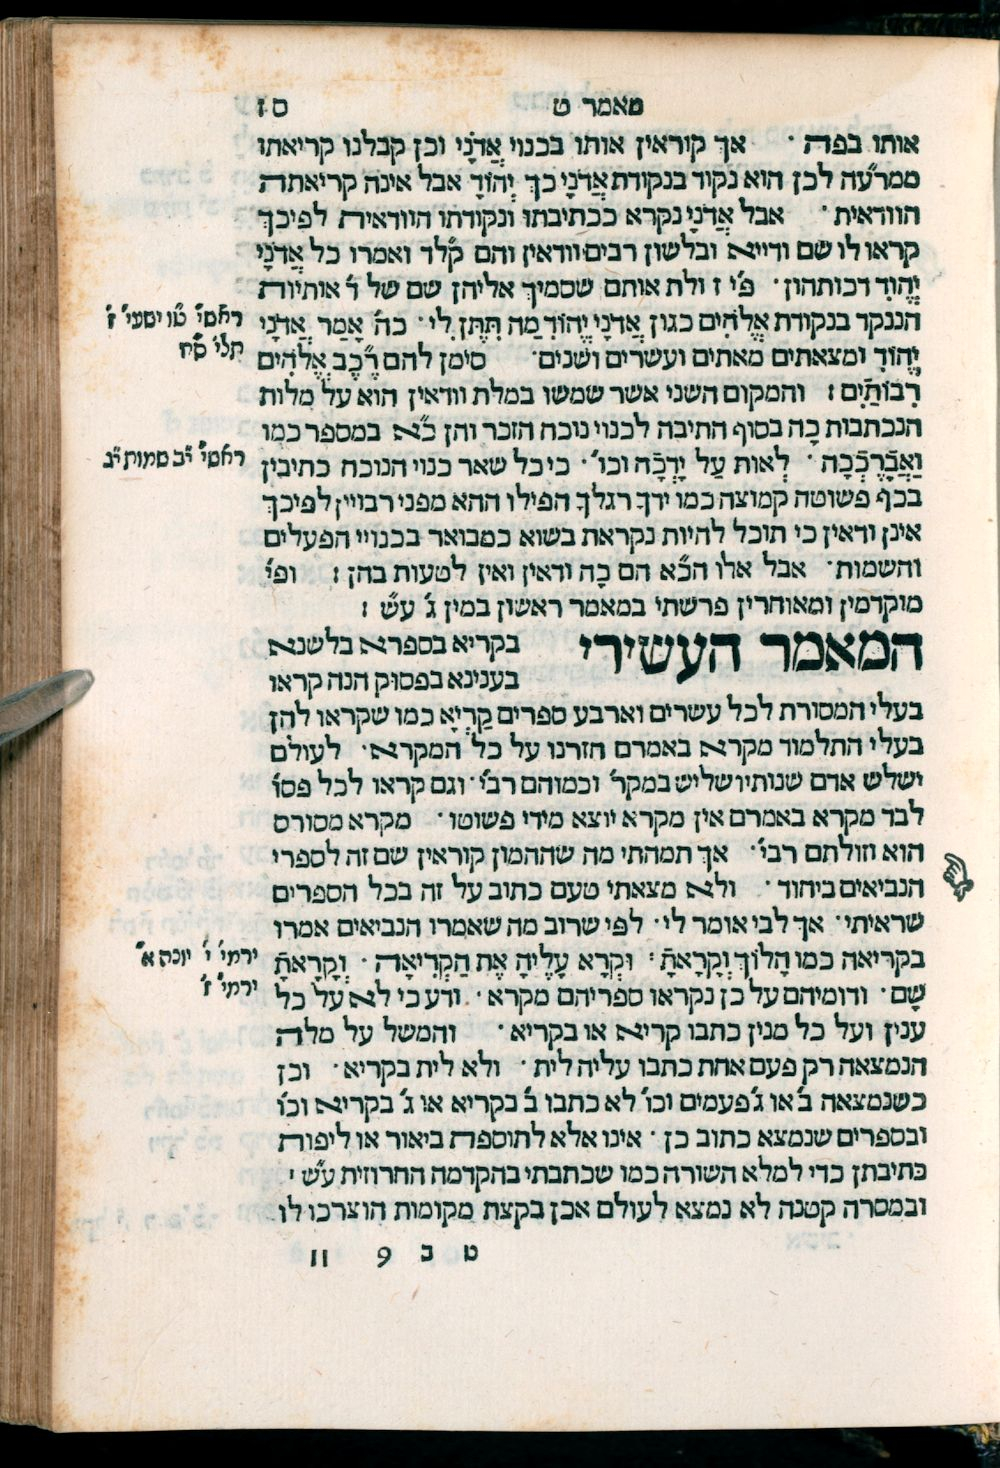 מאמר ט
ס ז
אותו בפה · אך קוראין אותו בכנוי אֲדֹנָי וכן קבלנו קריאתו
ממר״עה לכן הוא נקוד בנקודת אֲדֹנָי כך יְהוֹדָ אבל אינה קריאתה
הוודאית · אבל אֲדֹנָי נקרא ככתיבתו ונקודתו הוודאית לפיכך
קראו לו שם ודייא ובלשון רבים וודאין והם ק״לד ואמרו כל אֲדֹנָי
יֱהֶוִד דכותהון · פ״י זולת אותם שסמיך אליהן שם של ד׳ אותיות
הננקד בנקודת אֱלֹהִים כגון אֲדֹנָי יֱהוִֹד מַה תִּתֶּן לִי · כה אָמַר אֲדֹנָי
יֱהוִֹד ומצאתים מאתים ועשרים ושנים · סימן להם רֶ״כֶב אֱלֹהִים
רִבּוֹתַיִם : והמקום השני אשר שמשו במלת וודאין הוא על מלות
הנכתבות כָה בסוף התיבה לכנוי נוכח הזכר והן כ״א במספר כמו
וַאֲבָרֶכְכָה · לְאוֹת עַל יָדְכָה וכו׳ · כי כל שאר כנוי הנוכח כתיבין
בכף פשוטה קמוצה כמו ידך רגלך הפילו ההא מפני רבויין לפיכך
אינן ודאין כי תוכל להיות נקראת בשוא כמבואר בכנויי הפעלים
והשמות · אבל אלו הכ״א הם כָה ודאין ואין לטעות בהן : ופי׳
מוקדמין ומאוחרין פרשתי במאמר ראשון במין ג׳ עש״ :
המאמר העשירי בקריא בספרא בלשנא
בענינא בפסוק הנה קראו
בעלי המסורת לכל עשרים וארבע ספרים קַרְיָא כמו שקראו להן
בעלי התלמוד מקרא באמרם חזרנו על כל המקרא · לעולם
ישלש אדם שנותיו שליש במקר׳ וכמוהם רבי׳ · וגם קראו לכל פסו׳
לבד מקרא באמרם אין מקרא יוצא מידי פשוטו · מקרא מסורס
הוא וזולתם רבי׳ · אך תמהתי מה שההמון קוראין שם זה לספרי
הנביאים ביחוד · ולא מצאתי טעם כתוב על זה בכל הספרים
שראיתי · אך לבי אומר לי · לפי שרוב מה שאמרו הנביאים אמרו
בקריאה כמו הָלוֹךְ וְקָרָאתָ : וּקְרָא עָלֶיהָ אֶת הַקְּרִיאָה · וְקָרָאתָ
שָׁם · ודומיהם על כן נקראו ספריהם מקרא · ודע כי לא על כל
ענין ועל כל מנין כתבו קריא או בקריא · והמשל על מלה
הנמצאה רק פעם אחת כתבו עליה לית · ולא לית בקריא · וכן
כשנמצאה ב׳ או ג׳ פעמים וכו׳ לא כתבו ב׳ בקריא או ג׳ בקריא וכו׳
ובספרים שנמצא כתוב כן · אינו אלא לתוספת ביאור או ליפות
כתיבתן כדי למלא השורה כמו שכתבתי בהקדמה החרוזית עש״ י
ובמסרה קטנה לא נמצא לעולם אכן בקצת מקומות הוצרכו לו
ט ב 9 11
ראשי׳ טו ישעי׳ ז׳
תלי׳ ס״ח
ראשי׳ י״ב שמות י״ג
ירמי׳ ו׳ יונה א׳
ירמי׳ ז׳